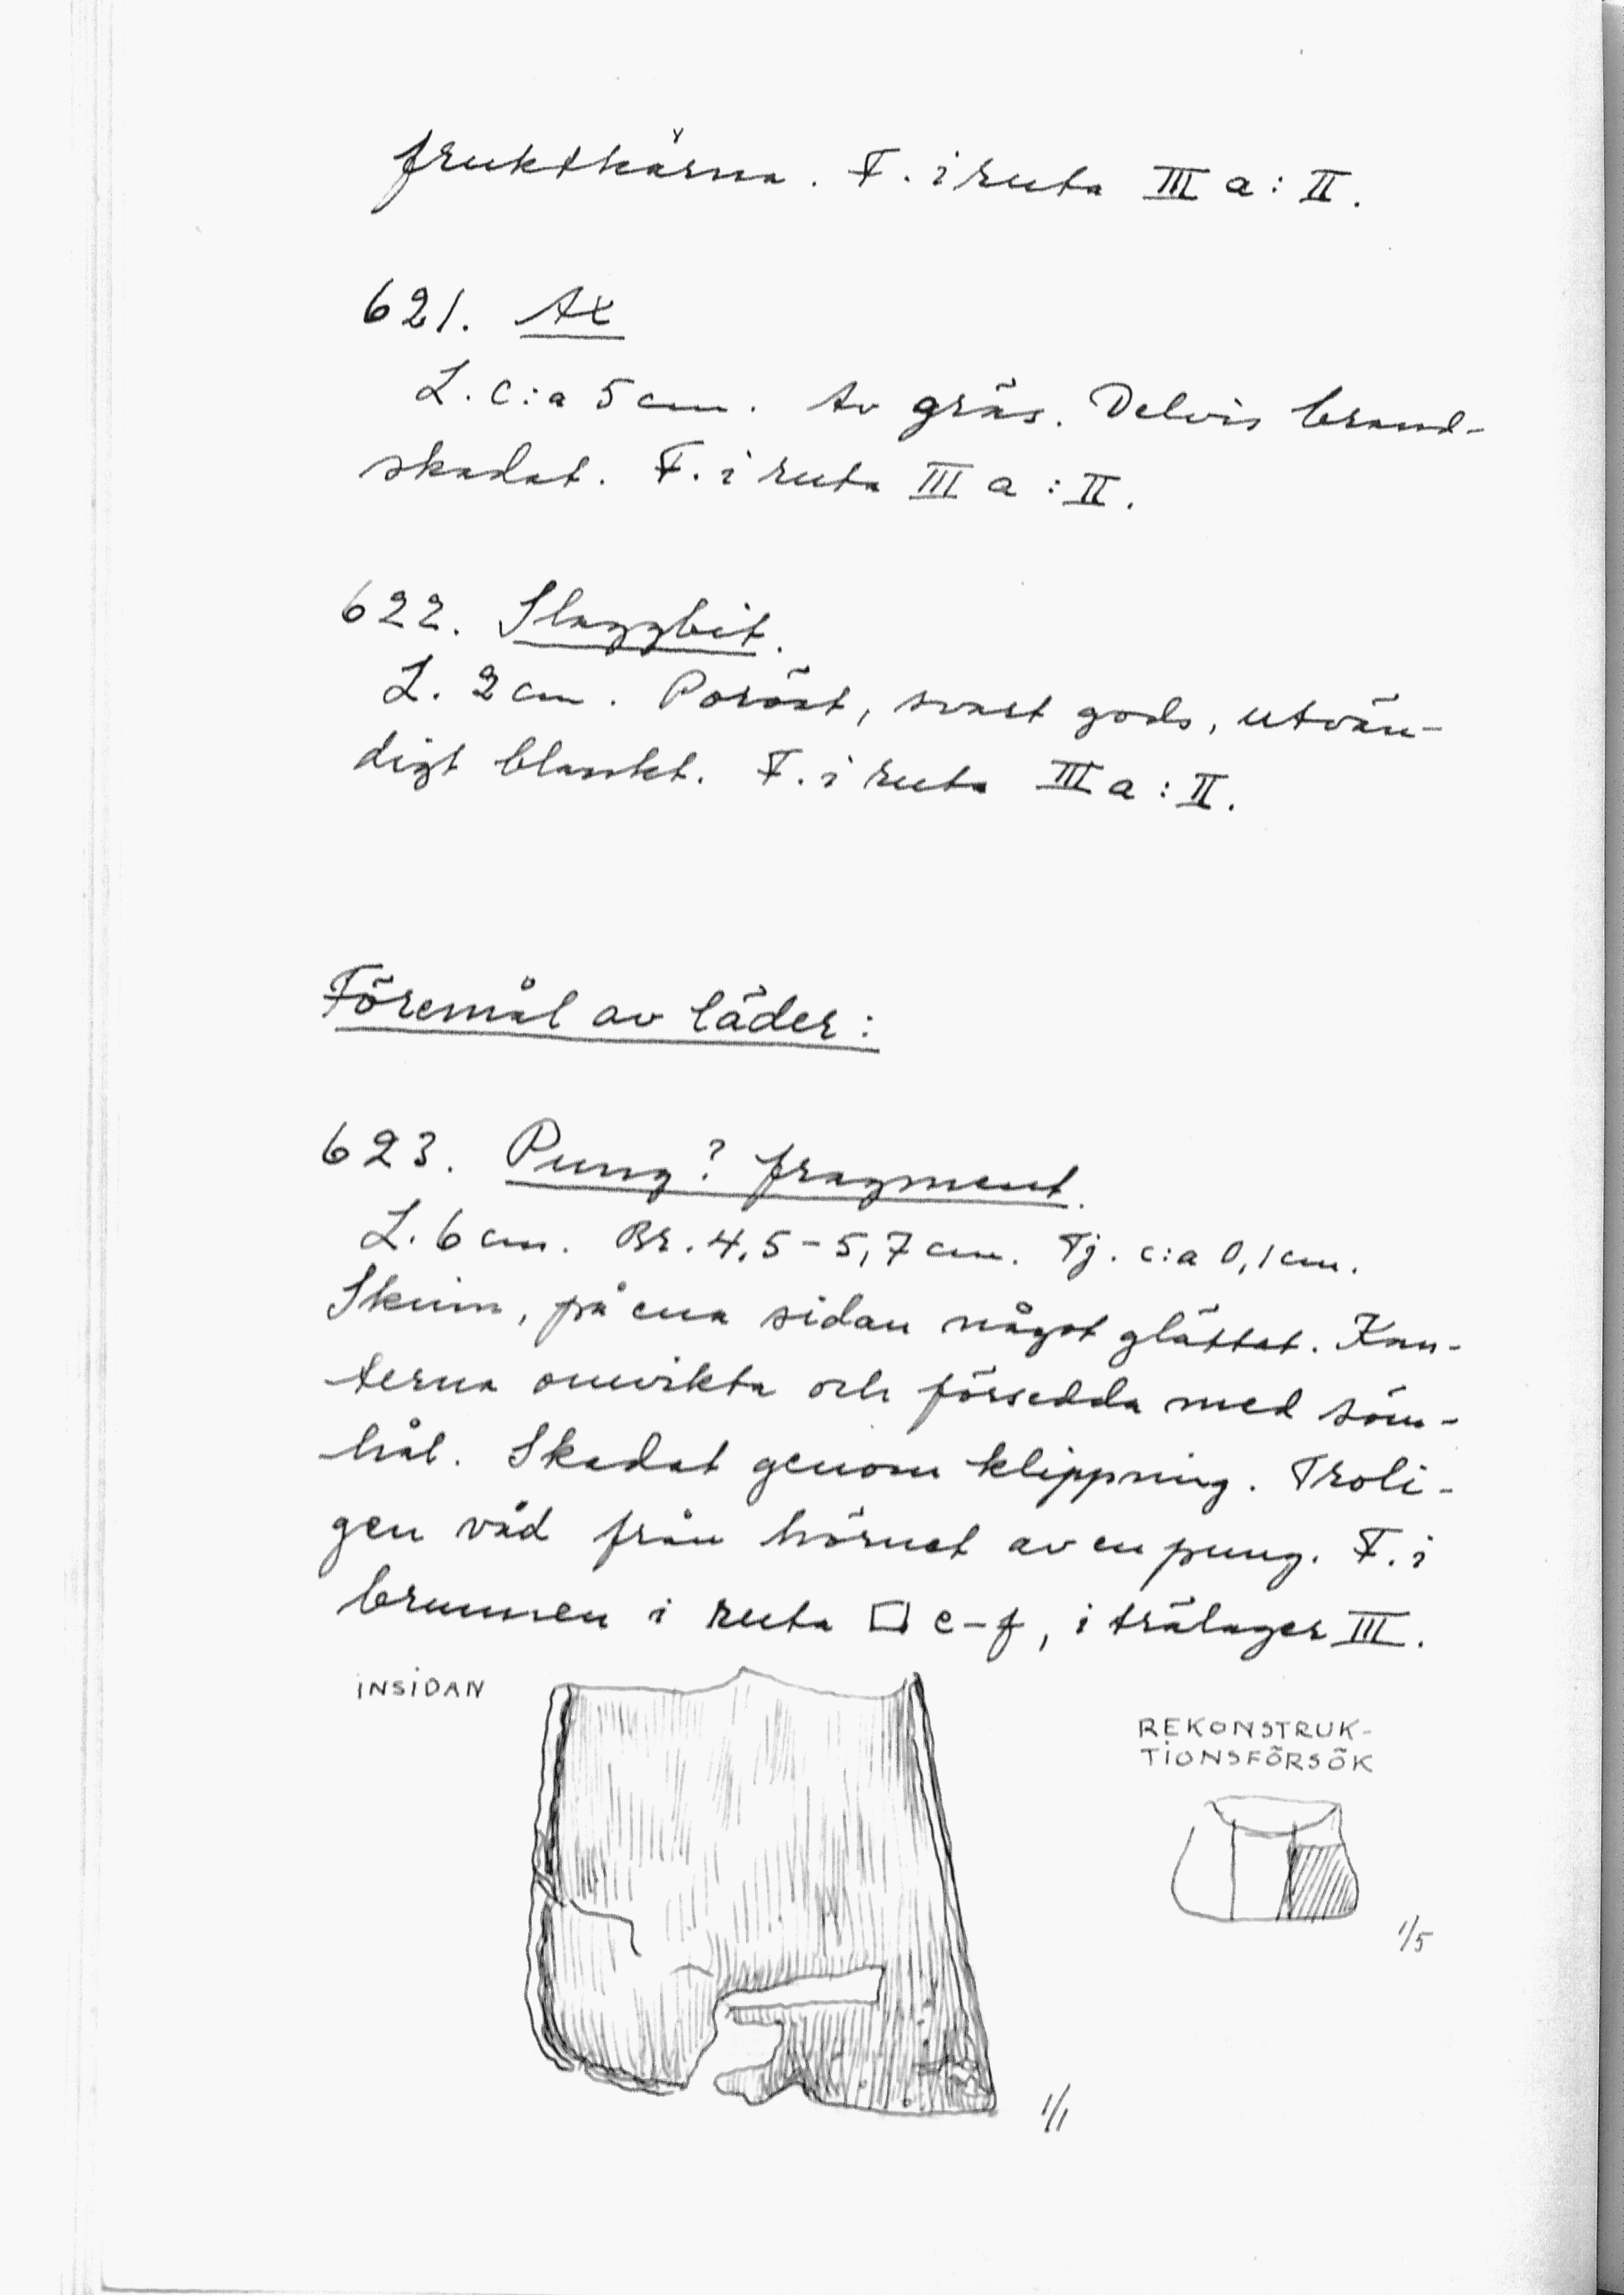 fruktkärna. F. i ruta III a : II.
621. Ax
L. c:a 5 cm. Av gräs. Delvis brand-
skadat. F. i ruta III a : II.
622. Slaggbit.
L. 2 cm. Poröst, svart gods, utvän-
digt blankt. F. i ruta III a : II.
Föremål av läder:
623. Pung? fragment.
L. 6 cm. Br. 4,5-5,7 cm. Tj. c:a 0,1 cm.
Skinn, på ena sidan något glättat. Kan-
terna omvikta och försedda med söm-
hål. Skadat genom klippning. Troli-
gen våd från hörnet av en pung. F. i
brunnen i ruta □ e-f, i trälager III.
INSIDAN
REKONSTRUK-
TIONSFÖRSÖK
1/5
1/1